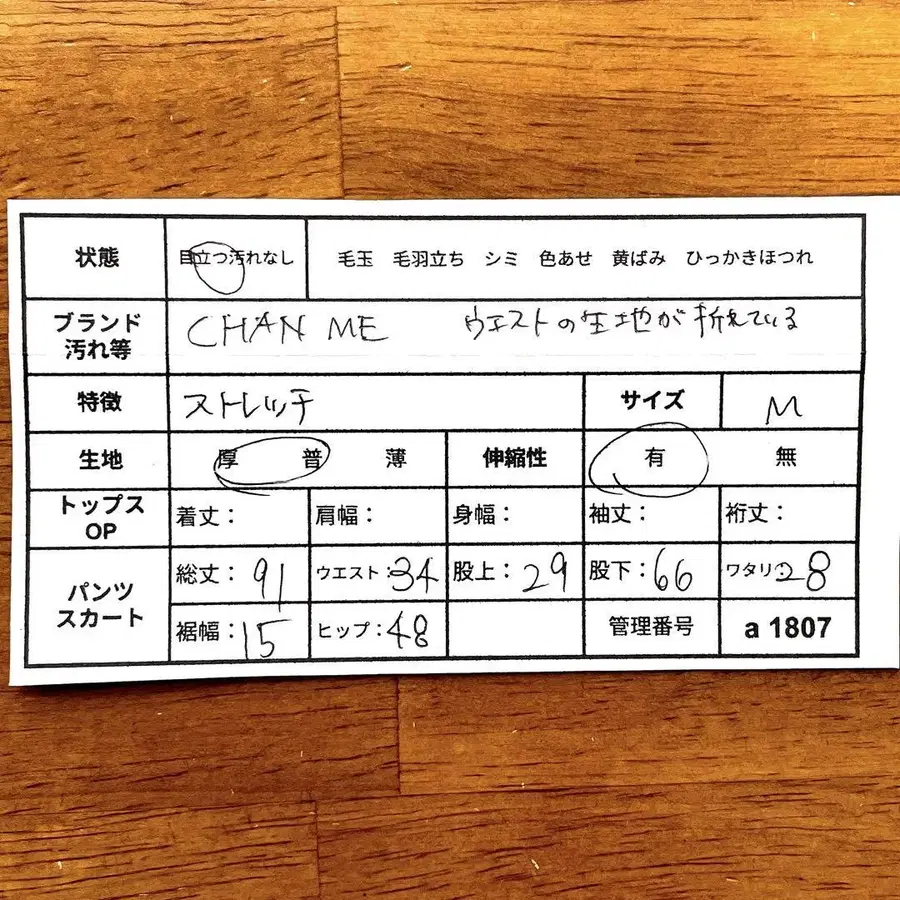 状態 目立つ汚れなし 毛玉 毛羽立ち シミ 色あせ 黄ばみ ひっかきほつれ
ブランド 汚れ等 CHAN ME ウエストの生地が折れている
特徴 ストレッチ サイズ M
生地 厚 普 薄 伸縮性 有 無
トップス OP 着丈: 肩幅: 身幅: 袖丈: 裄丈:
パンツ スカート 総丈:91 ウエスト:34 股上:29 股下:66 ワタリ:28
裾幅:15 ヒップ:48 管理番号 a 1807